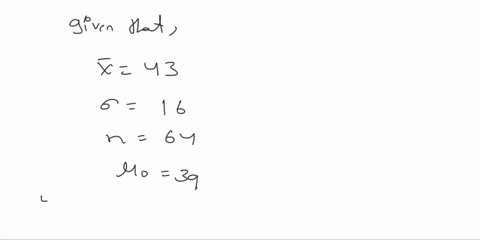 given that,
x̄ = 43
σ = 16
n = 64
μ0 = 39